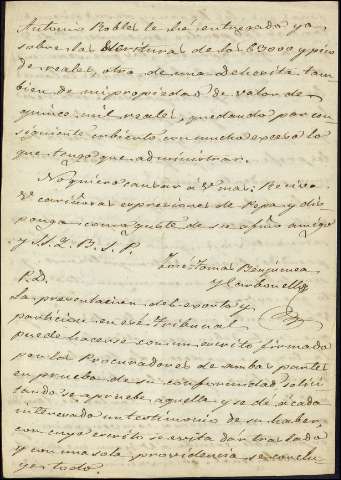 Antonio Robles le hé entregado ya
sobre las escrituras de los 63000 y pico
de reales, otra de una Dehesita tam-
bien de mi propiedad de valor de
quince mil reales, quedando por con-
siguiente cubierto con mucho exceso lo
que tengo que administrar.
No quiero cansar á V. mas: Reciva
V. cariñosas expresiones de Pepa y dis-
ponga como guste de su afmo amigo
y S. S. Q. B. S. P.
José Tomas Benjumea
y Carbonell
P. D.
La presentacion del exorto y
particion en ese Tribunal
puede hacerse con un escrito firmado
por los Procuradores de ambas partes
en prueba de su conformidad solici-
tando se apruebe aquella y se dé á cada
interesado un testimonio de su haber,
con cuyo escrito se evita dar traslado
y con una sola providencia se conclu-
ye todo.